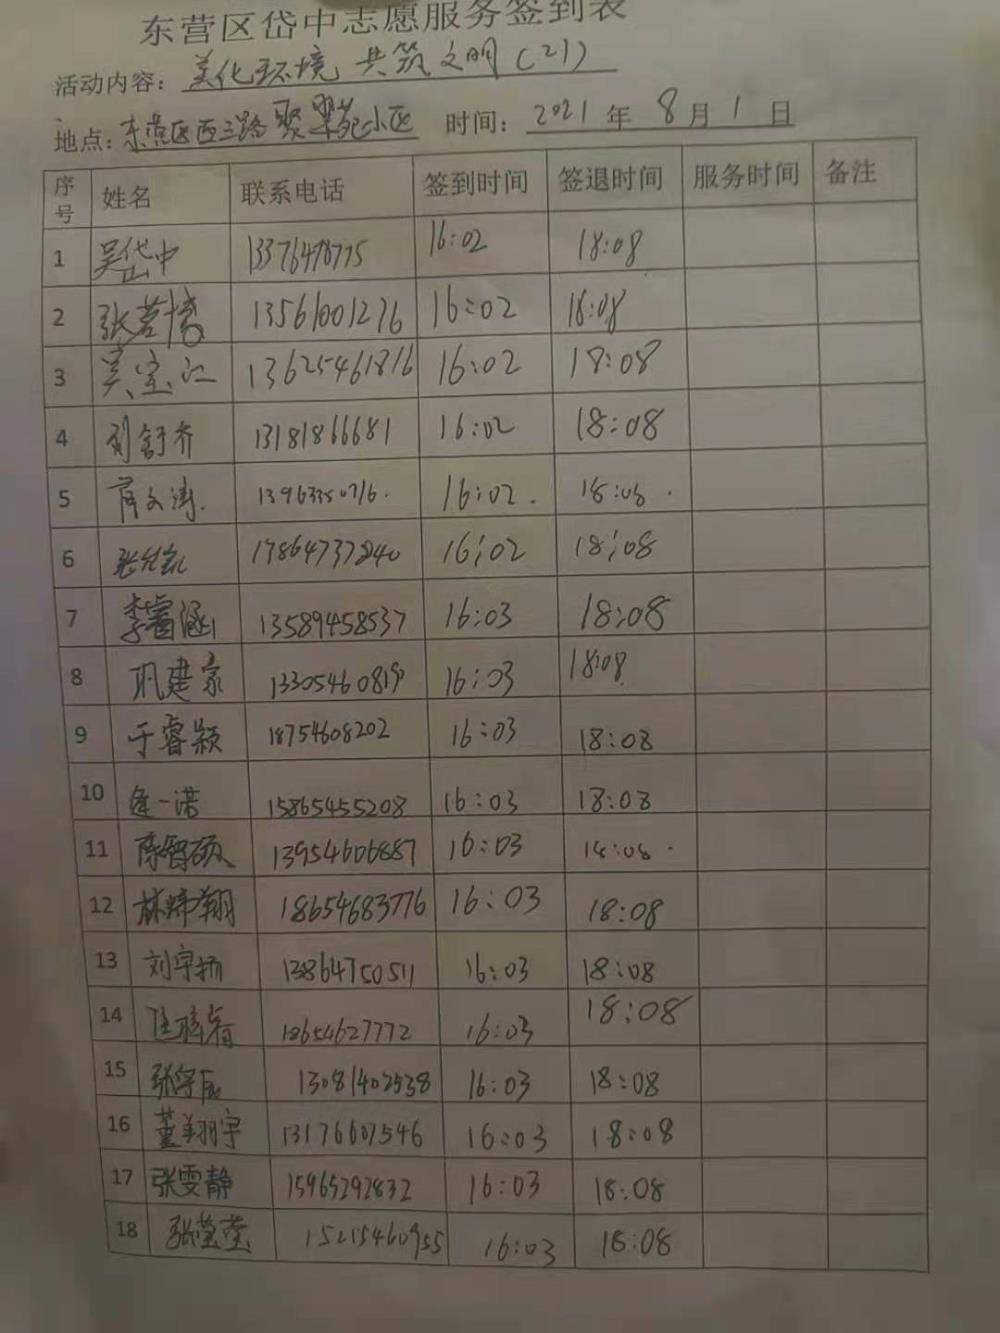 东营区岱中志愿服务签到表
活动内容：美化环境 共筑文明（21）
地点：东营区西三路聚翠苑小区 时间：2021年8月1日
序号 姓名 联系电话 签到时间 签退时间 服务时间 备注
1 吴岱中 13376478775 16:02 18:08
2 张茗 13561001276 16:02 18:08
3 吴宝江 13625461816 16:02 18:08
4 刘舒齐 13181866681 16:02 18:08
5 薛文涛. 13963350716. 16:02. 18:08.
6 17864737240 16:02 18:08
7 李睿涵 13589458537 16:03 18:08
8 巩建家 13305460819 16:03 18:08
9 于睿颖 18754608202 16:03 18:08
10 逄一诺 15865455208 16:03 18:08
11 陈智硕 13954606887 16:03 18:08.
12 林炜翔 18654683776 16:03 18:08
13 刘宇扬 13864750511 16:03 18:08
14 18654627772 16:03 18:08
15 张宇辰 13081402538 16:03 18:08
16 董翔宇 13176607546 16:03 18:08
17 张雯静 15965292832 16:03 18:08
18 张莹莹 15215460955 16:03 18:08